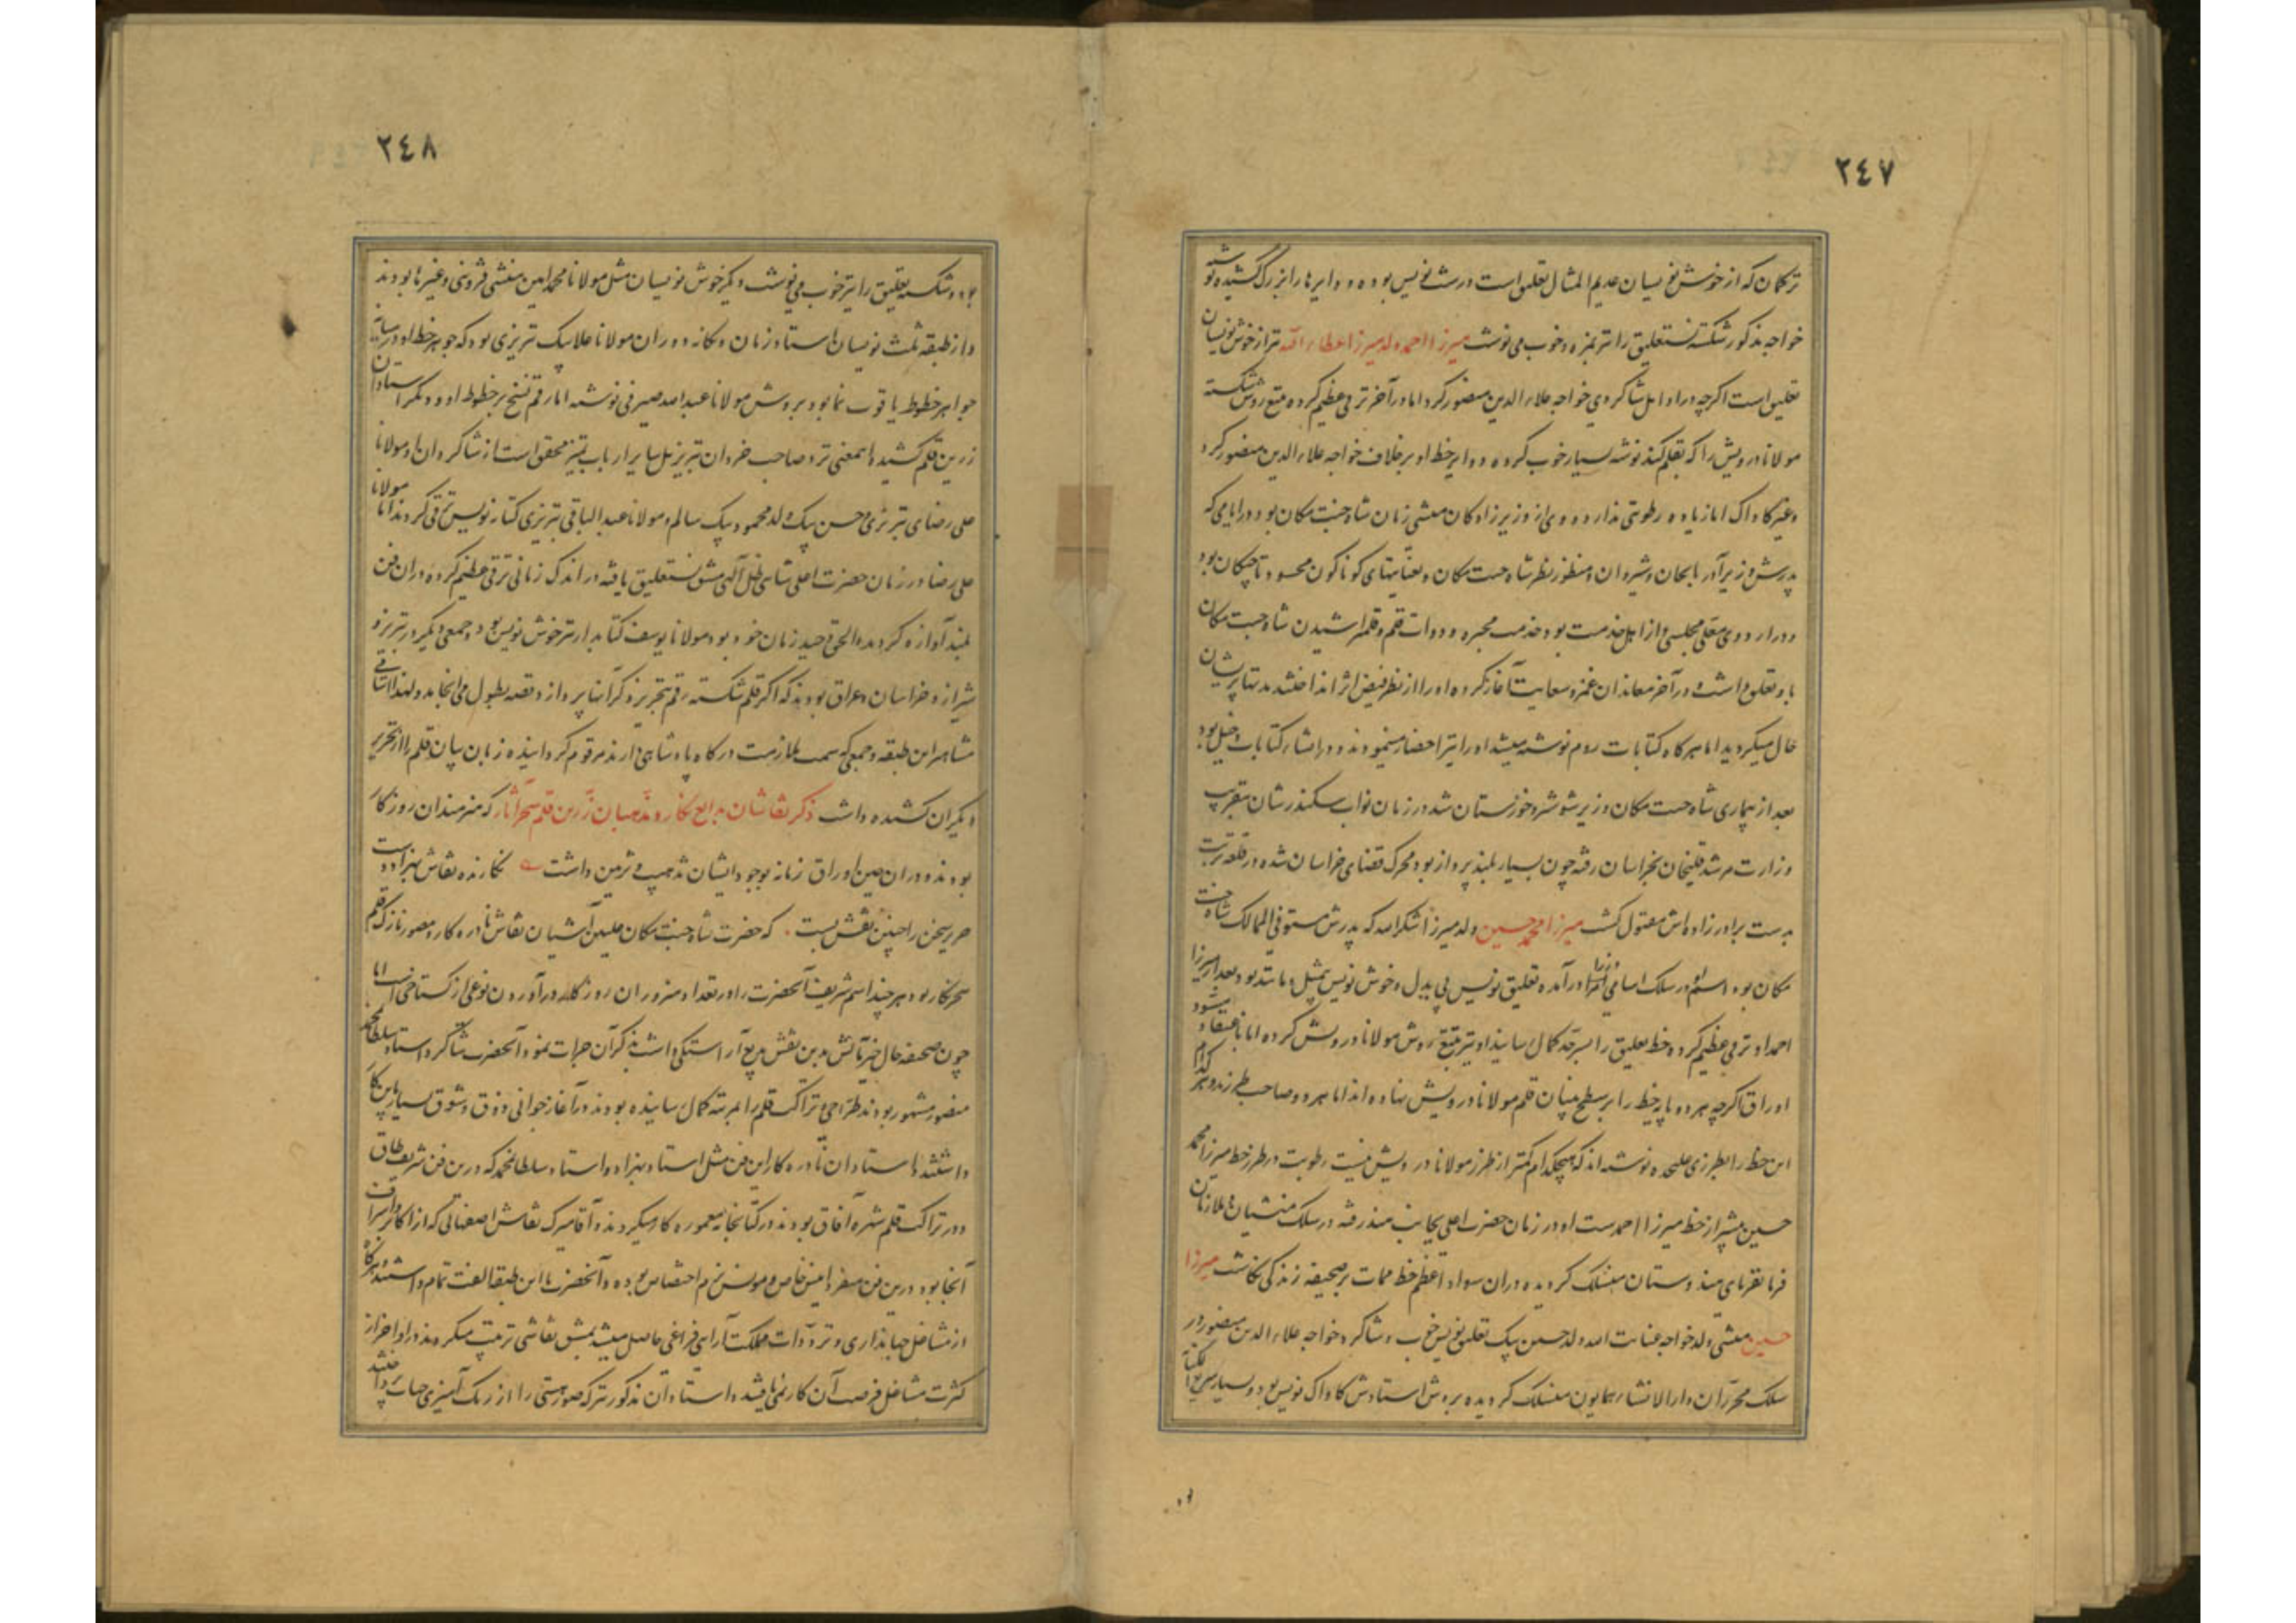 ٢٤٧
ترکمان که از خوش نویسان عدیم المثال تعلیق است درست نویس بوده و دوایرها را بزرگ کشیده نوشته
خواجه مذکور شکسته نستعلیق را نیز بمزه و خوب می نوشت میرزا احمد ولد میرزا عطاء الله نیز از خوش نویسان
تعلیق است اگرچه در اوایل شاگردی خواجه علاء الدین منصور کرد اما در آخر ترقی عظیم کرده تتبع روش شکسته
مولانا درویش را که بقلم کند نوشته بسیار خوب کرده و دوایر خط او بر خلاف خواجه علاء الدین منصور گرد
و غیر کاواک اما زیاده رطوبتی ندارد و وی از وزیرزادکان منشی زمان شاه جنت مکان بود و در ایامی که
پدرش وزیر آذربایجان و شیروان و منظور نظر شاه جنت مکان و بعنایتهای کوناکون محسود تاجیکان بود
و در اردوی معلی مجلسی و از اهل خدمت بود خدمت محبره و دوات قلم و قلمتراشیدن شاه جنت مکان
باو تعلق داشت و در آخر معاندان غمز و سعایت آغاز کرده او را از نظر فیض اثر انداختند مدتها پریشان
حال میکردید اما هرکاه کتابات روم نوشته میشد او را نیز احضار مینمودند و در انشاء کتابات دخیل بود
بعد از بیماری شاه جنت مکان وزیر شوشتر و خوزستان شد در زمان نواب سکندرشان بتقریب
وزارت مرشد قلیخان بخراسان رفته چون بسیار بلندپرواز بود محرک قضای خراسان شده در قلعه تربت
بدست برادرزادهاش مقتول کشت میرزا محمد حسین ولد میرزا شکرالله که پدرش مستوفی الممالک شاه جنت
مکان بوده اسم او در سلک اسامی وزرا درآمده تعلیق نویس بی بدل و خوش نویس بیمثل و مانند بود بعد از میرزا
احمد او ترقی عظیم کرده خط تعلیق را بسرحد کمال رسانید او نیز تتبع روش مولانا درویش کرده اما باعتقاد مسود
اوراق اکرچه هر دو پایه خط را بر سطح بنیان قلم مولانا درویش نهاده اند اما هر دو صاحب طرزند و هر کدام
این خط را بطرزی علیحده نوشته اند که هیچکدام کمتر از طرز مولانا درویش نیست رطوبت در طرز خط میرزا محمد
حسین بیشتر از خط میرزا احمدست او در زمان حضرت اعلی بجانب هند رفته در سلک منشیان و ملازمان
فرمانفرمای هندوستان منسلک کردیده در آن سواد اعظم خط ممات بر صحیفه زندکی نکاشت میرزا
حسین منشی ولد خواجه عنایت الله ولد حسین بیک تعلیق نویس خوب و شاکرد خواجه علاء الدین منصور در
سلک محرران دارالانشاء همایون منسلک کردیده بروش استادش کاواک نویس بود و بسیار سریع الکتابه
٢٤٨
بود و شکسته تعلیق را نیز خوب می نوشت و دیکر خوش نویسان مثل مولانا محمد امین منشی قزوینی و غیرها بودند
و از طبقه ثلث نویسان استاد زمان و یکانه دوران مولانا علابیک تبریزی بود که جوهر خط او در ساینه
جواهر خطوط یاقوت نما بود و بروش مولانا عبدالله صیرفی نوشته اما رقم نسخ بر خطوط او و دیکر استادان
زرین قلم کشیده و اینمعنی نزد صاحب خردان تبریز بل سایر ارباب تمیز محقق است از شاکردان او مولانا
علی رضای تبریزی و حسن بیک ولد محمود بیک سالم و مولانا عبدالباقی تبریزی کتابه نویس ترقی کردند اما مولانا
علی رضا در زمان حضرت اعلی شاهی ظل اللهی مشق نستعلیق یافته در اندک زمانی ترقی عظیم کرده در آن فن
بلند آوازه کردیده الحق وحید زمان خود بود مولانا یوسف کتابدار نیز خوش نویس بود و جمعی دیکر در تبریز و
شیراز و خراسان و عراق بودند که اکر قلم شکسته رقم بتحریر ذکر آنها پردازد قصه بطول می انجامد و لهذا اسامی
مشاهیر این طبقه و جمعی که سمت ملازمت درکاه پادشاهی دارند مرقوم کردانیده زبان بیان قلم را از تحریر
دیکران کشیده داشت ذکر نقاشان بدایع نکار و مذهبان زرین قلم سحرآثار که هنرمندان روزکار
بودند و در آن حین اوراق زمانه بوجود ایشان تذهیب و تزیین داشت نکارنده نقاش بهزاد دست
حریر سخن را چنین نقش بست که حضرت شاه جنت مکان علیین آشیان نقاش نادره کار و مصور نازک قلم
سحر نکار بود هرچند اسم شریف آنحضرت را در تعداد هنروران روزکار درآوردن نوعی از کستاخی است اما
چون صحیفه حال خیر مآلش بدین نقش بدیع آراستکی داشت بذکر آن جرات نمود آنحضرت شاکرد استاد سلطان محمد
منصور مشهور بودند طراحی و نزاکت قلم را بمرتبه کمال رسانیده بودند در آغاز جوانی ذوق و شوق بسیار باین کار
داشتند و استادان نادره کار این فن مثل استاد بهزاد و استاد سلطانمحمد که درین فن شریف طاق
و در نزاکت قلم شهره آفاق بودند در کتابخانه معموره کار میکردند و آقامیرک نقاش اصفهانی که از اکابر و اشراف
آنجا بود و درین فن منفرد انیس خاص و مونس بزم اختصاص بوده و آنحضرت با این طبقه الفت تمام داشتند هرکاه
از مشاغل جهانداری و ترددات مملکت آرایی فراغی حاصل میشد بمشق نقاشی تربیت میکردند و در اواخر از
کثرت مشاغل فرصت آن کار نمی یافتند و استادان مذکور ترک صورت هستی را از رنک آمیزی حیات پرداختند